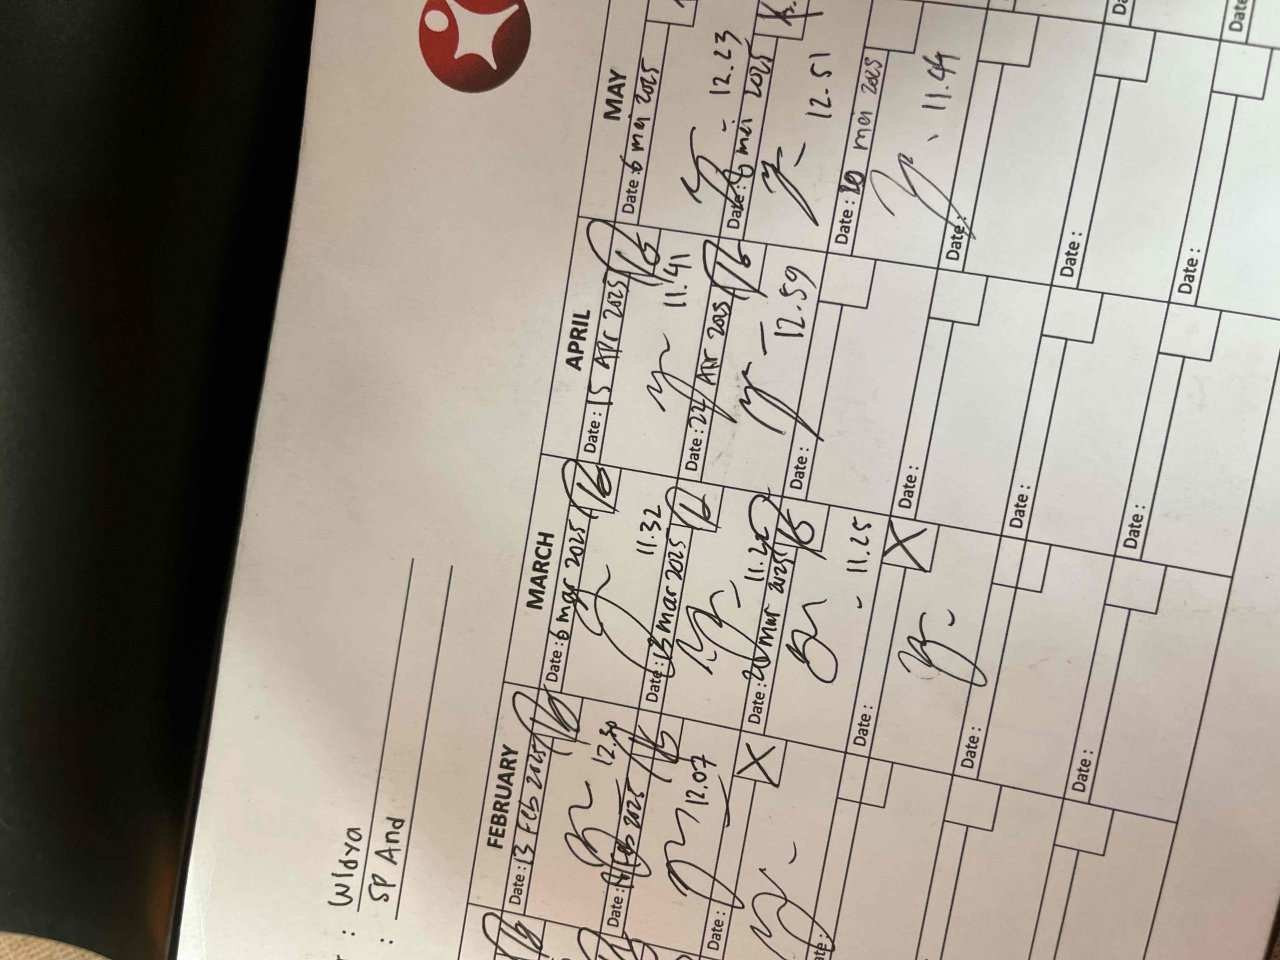 : Widya
: SP And
FEBRUARY
Date : 13 Feb 2025
12.30
Date : Feb 2025
12.07
Date :
MARCH
Date : 6 mar 2025
11.32
Date : 13 mar 2025
11.25
Date : 20 mar 2025
11.25
Date :
Date :
Date :
APRIL
Date : 15 Apr 2025
11.41
Date : 22 Apr 2025
12.59
Date :
Date :
Date :
Date :
MAY
Date : 6 mei 2025
12.23
Date : 8 mei 2025
12.51
Date : 20 mei 2025
11.44
Date :
Date :
Date :